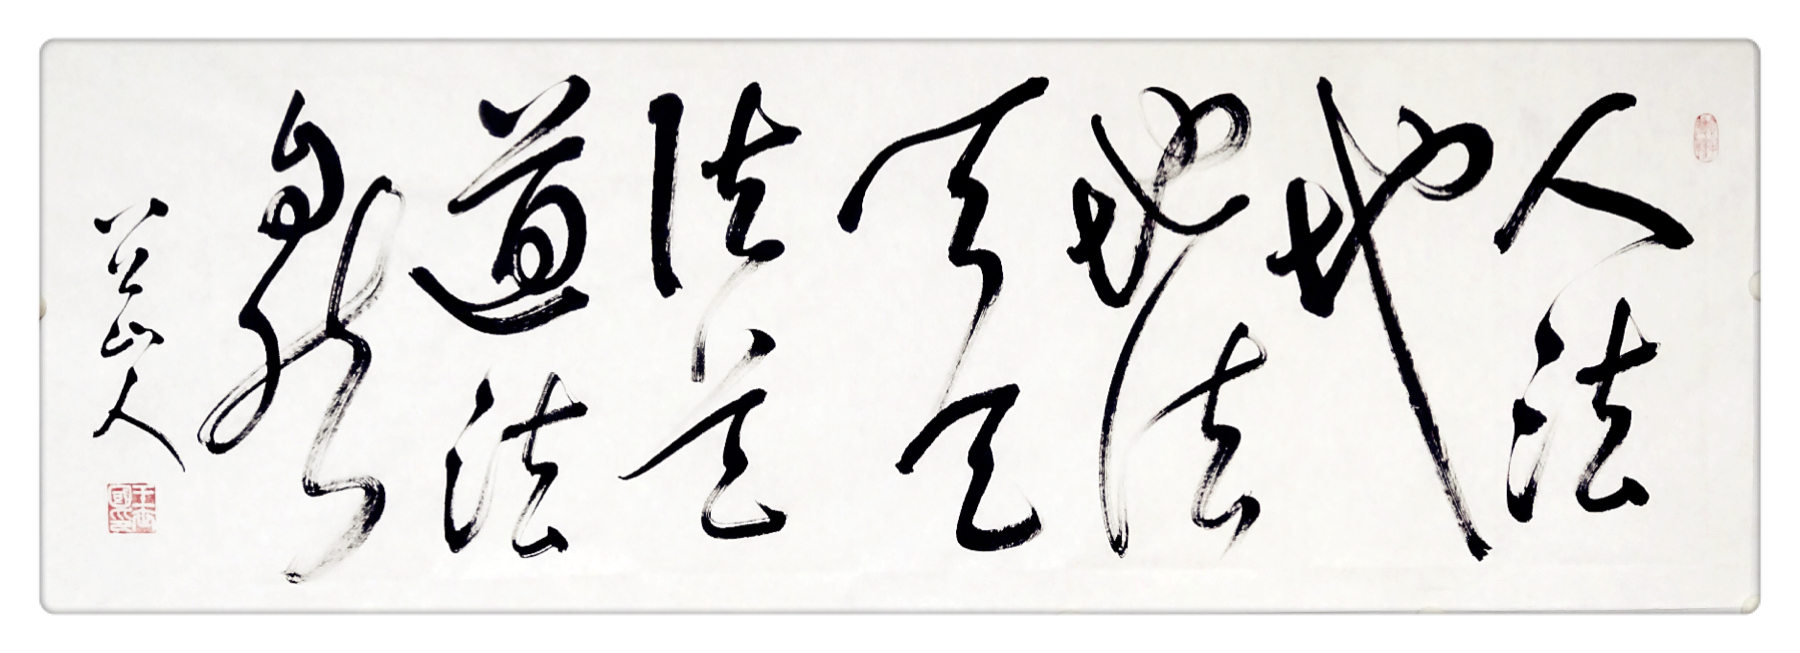 人法
地
地法
天天
法道
道法
自然
八公山人